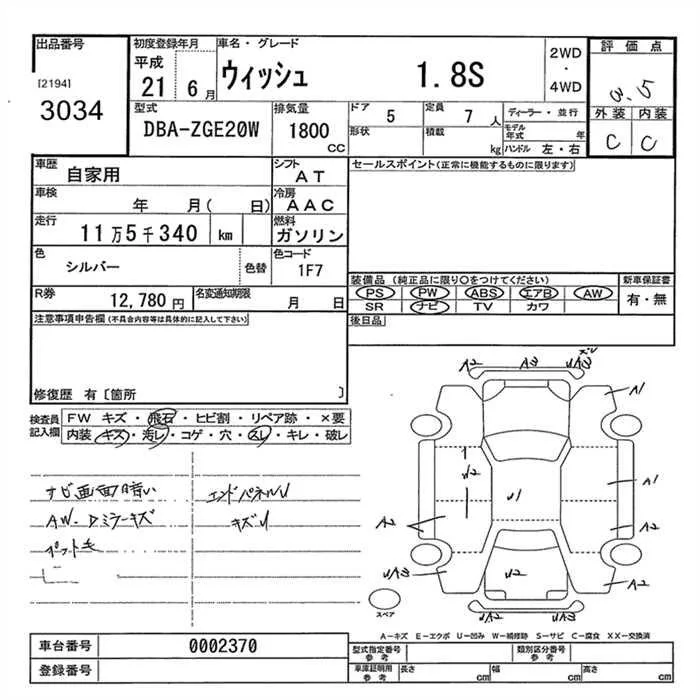 出品番号 初度登録年月 車名・グレード 2WD・4WD 評価点
[2194] 平成 21 6月 ウィッシュ 1.8S 3.5
3034 型式 排気量 ドア 5 定員 7人 ディーラー・並行 外装 内装
DBA-ZGE20W 1800 CC 形状 積載 kg モデル年式 年 ハンドル 左・右 C C
車歴 自家用 シフト AT セールスポイント(正常に機能するものに限ります)
車検 年 月( 日) 冷房 AAC
走行 11万5千340 km 燃料 ガソリン
色 シルバー 色替 色コード 1F7
装備品(純正品に限り○をつけてください) 新車保証書
R券 12,780円 名変通知期限 月 日 PS PW ABS エアB AW 有・無
SR ナビ TV カワ
注意事項申告欄(不具合内容等は具体的に記入して下さい) 後日品
修復歴 有〔箇所 〕
検査員記入欄 FW キズ・飛石・ヒビ割・リペア跡・×要
内装 キズ・汚レ・コゲ・穴・スレ・キレ・破レ
ナビ画面暗い エンドパネルU
AW.Dミラーキズ キズU
ペット毛
A2 A3 UA3 ズレ
A1
U2 U1 A1
A2 A2
UA3 U2 A2
A2 W2 UA2
スペア
A-キズ E-エクボ U-凹み W-補修跡 S-サビ C-腐食 XX-交換済
車台番号 0002370 型式指定番号 参考 類別区分番号 参考
登録番号 車庫証明用 参考 長さ cm 幅 cm 高さ cm